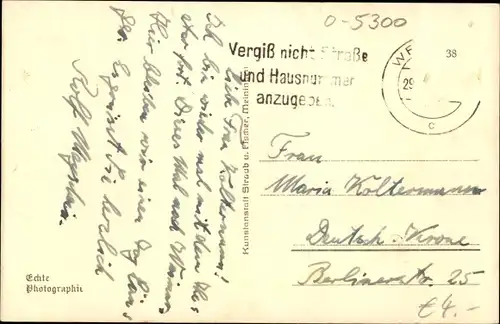 O-5300
Vergiß nicht Straße
und Hausnummer
anzugeben.
WE
38
29
c
Liebe Frau Koltermann!
Ich bin wieder mal mit den
fort. Dieses Mal nach Weimar.
Hier bleiben wir einen Tag lang.
Es grüßt Sie herzlich
Rolf
Kunstanstalt Straub u. Fischer, Meiningen
Frau
Maria Koltermann
Deutsch-Krone
Berlinerstr. 25
€4.-
Echte
Photographie